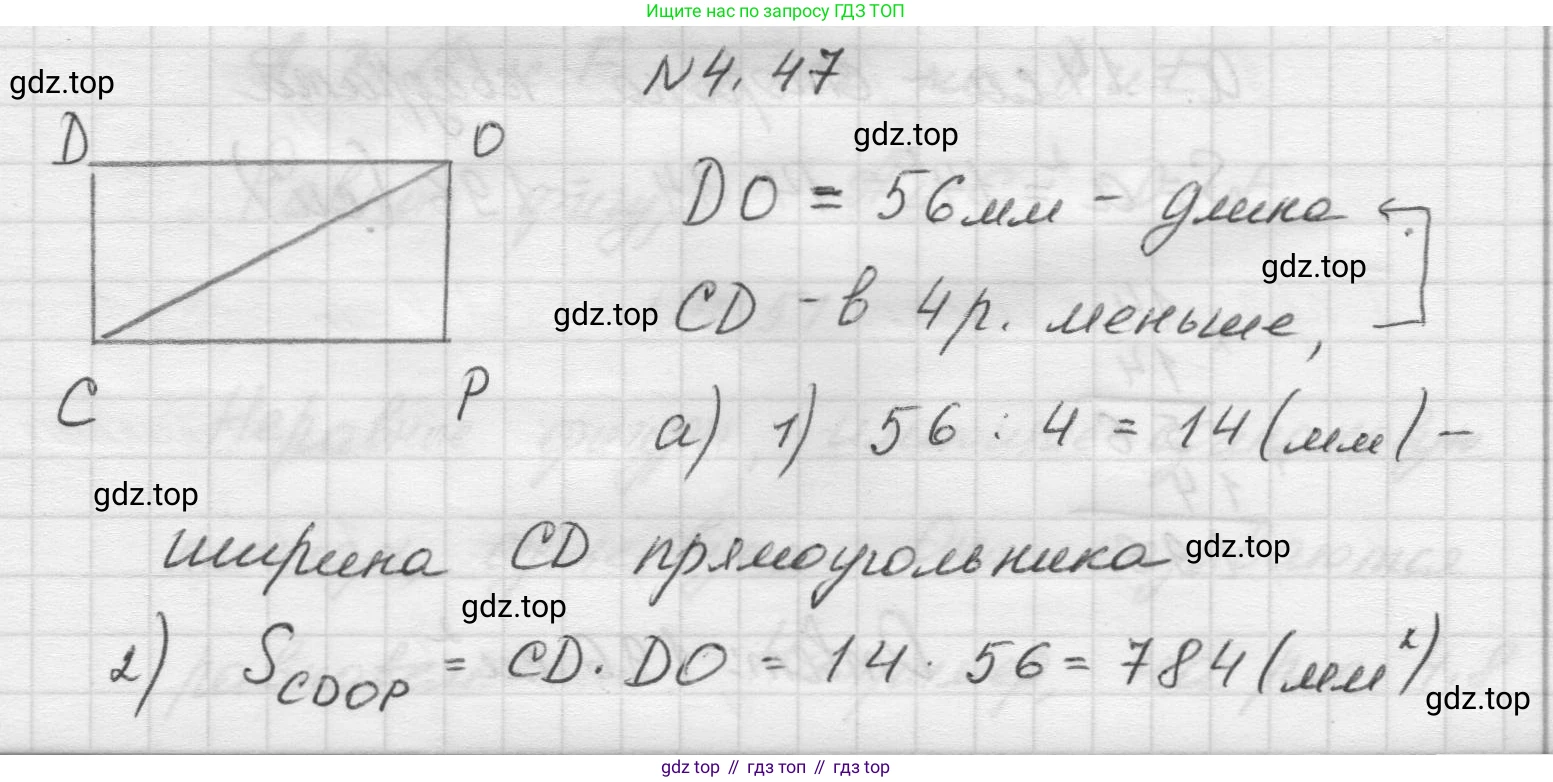 Ищите нас по запросу ГДЗ ТОП
N4.47
gdz.top
D
O
gdz.top
DO = 56мм - длина
gdz.top
gdz.top
CD - в 4 р. меньше,
C
P
а) 1) 56 : 4 = 14 (мм) -
gdz.top
ширина CD прямоугольника
gdz.top
gdz.top
2) S CDOP = CD · DO = 14 · 56 = 784 (мм²)
gdz.top
gdz top // гдз топ // гдз top